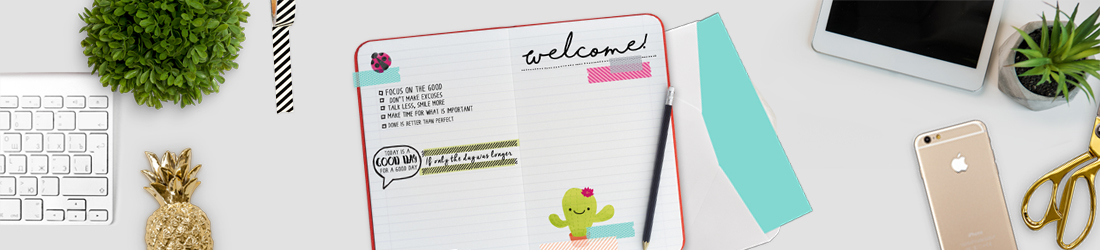 welcome!
FOCUS ON THE GOOD
DON'T MAKE EXCUSES
TALK LESS, SMILE MORE
MAKE TIME FOR WHAT IS IMPORTANT
DONE IS BETTER THAN PERFECT
TODAY IS A
GOOD DAY
FOR A GOOD DAY
If only the day was longer